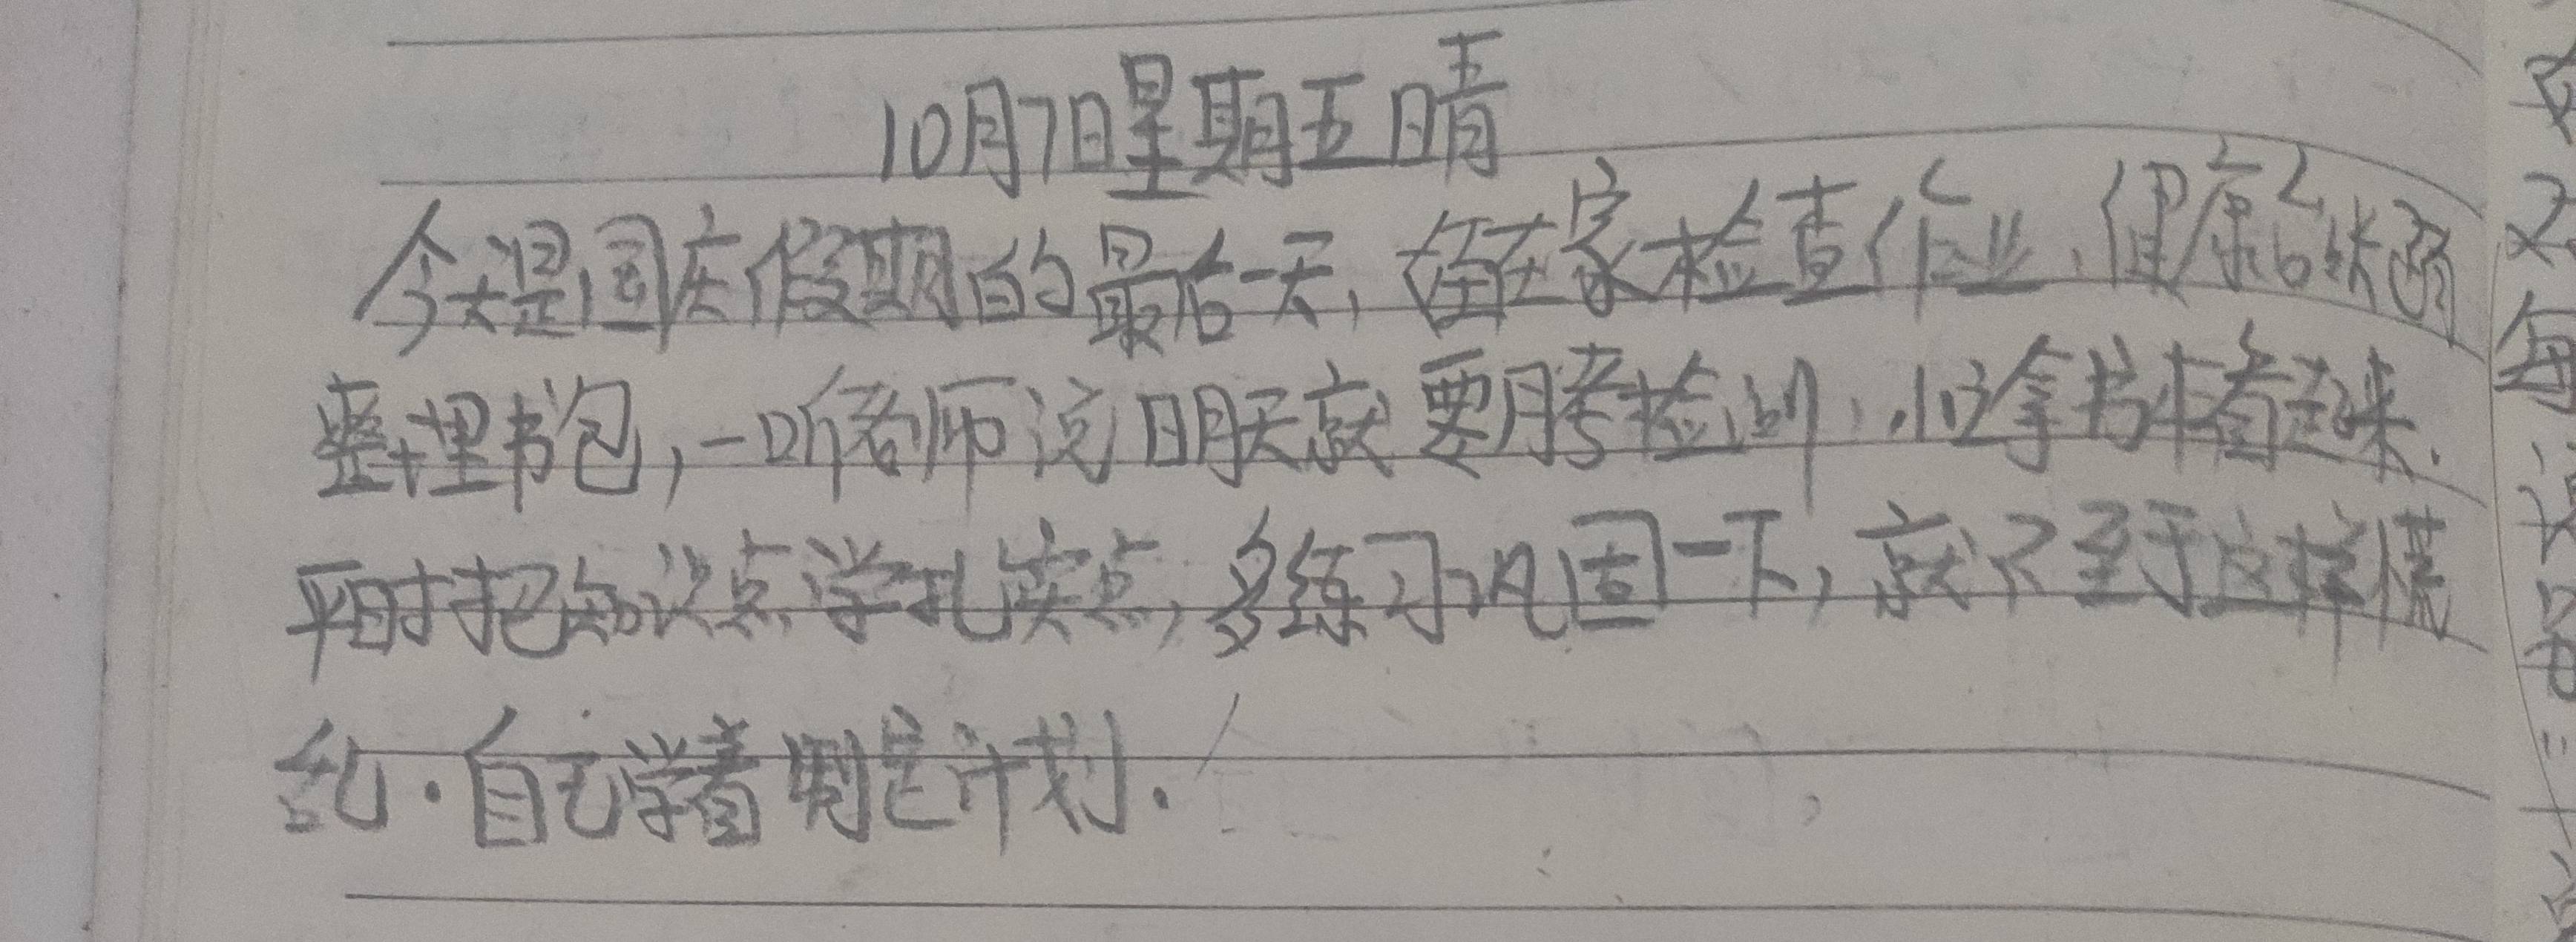 10月7日星期五晴
今天是国庆假期的最后一天,在家检查作业、健康
整理书包,一听老师说明天就要月考检测,.心拿书本看起来.
平时把知识点学扎实点,多练习巩固一下,就不至于这样慌
乱.自己学着制定计划.